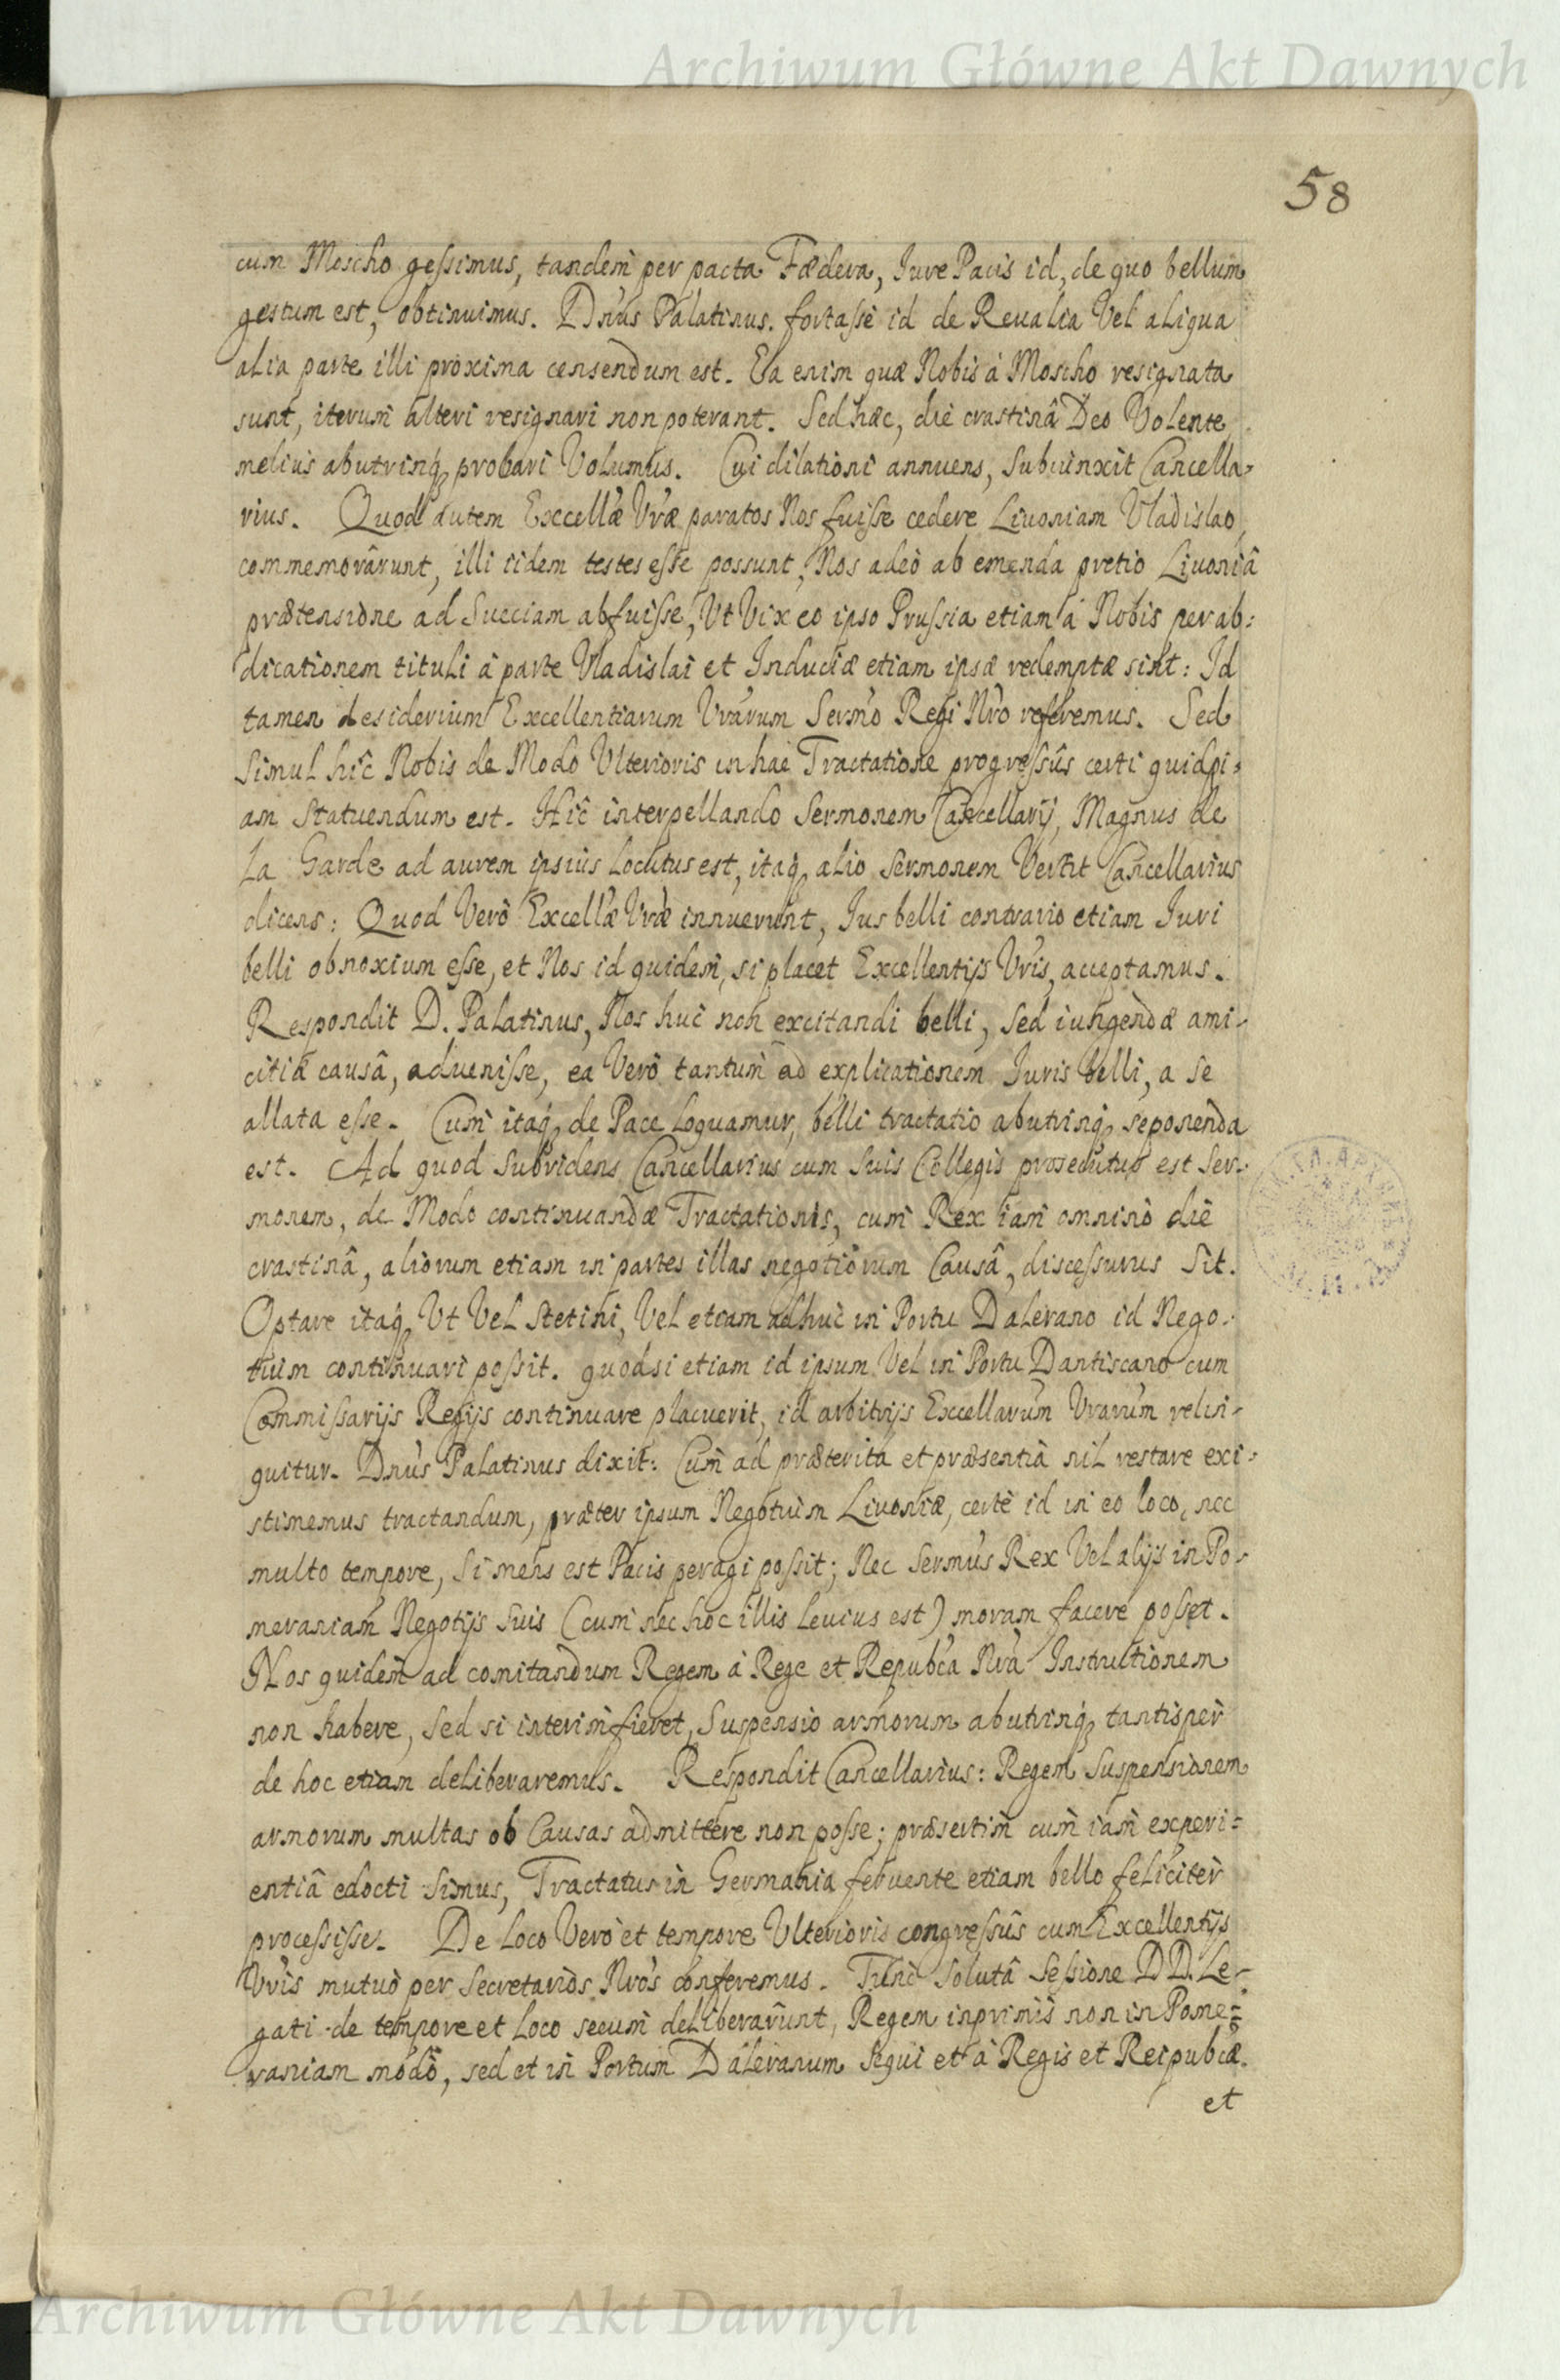 Archiwum Główne Akt Dawnych
58
cum Moscho geſsimus, tandem per pacta Fædera, Iure Pacis id, de quo bellum
gestum est, obtinuimus. Dnus Palatinus. fortaſse id de Reualia Vel aliqua
alia parte illi proxima censendum est. Ea enim quæ Nobis á Moscho resignata
sunt, iterum alteri resignari non poterant. Sed hæc, die crastinâ Deo Volente
melius abutrinq, probari Volumus. Cui dilationi annuens, Subiunxit Cancella-
rius. Quod autem Excellæ Vræ paratos Nos fuiſse cedere Liuoniam Vladislao,
commemorârunt, illi iidem testes eſse possunt, Nos adeò ab emenda pretio Liuoniâ
prætensione ad Sueciam abfuiſse, Vt Vix eo ipso Pruſsia etiam á Nobis per ab:
dicationem tituli á parte Vladislai et Induciæ etiam ipsæ redemptæ sint: Id
tamen desiderium Excellentiarum Vrarum Sermo Regi Nro referemus. Sed
Simul hîc Nobis de Modo Vlterioris in hac Tractatione progreſsûs certi quidpi-
am Statuendum est. Hîc interpellando Sermonem Cancellarij, Magnus de
La Garde ad aurem ipsius Locutus est, itaq, alio Sermonem Vertit Cancellarius
dicens: Quod Verò Excellæ Vræ innuerunt, Ius belli contrario etiam Iuri
belli obnoxium eſse, et Nos id quidem, si placet Excellentijs Vris, acceptamus.
Respondit D. Palatinus, Nos huc non excitandi belli, Sed iungendæ ami-
citiæ causâ, aduenisse, ea Verò tantum ad explicationem Iuris belli, a se
allata eſse. Cum itaq, de Pace Loquamur, belli tractatio abutrinq, seponenda
est. Ad quod Subridens Cancellarius cum Suis Collegis prosecutus est Ser-
monem, de Modo continuandæ Tractationis, cum Rex iam omninò die
crastinâ, aliorum etiam in partes illas negotiorum Causâ, disceſsurus Sit.
Optare itaq, Vt Vel Stetini, Vel etiam adhuc in Portu Dalerano id Nego-
tium continuari poſsit. quodsi etiam id ipsum Vel in Portu Dantiscano cum
Commiſsarijs Regijs continuare placuerit, id arbitrijs Excellarum Vrarum relin-
quitur. Dnus Palatinus dixit: Cum ad præterita et præsentia nil restare exi-
stimemus tractandum, præter ipsum Negotium Liuoniæ, certè id in eo loco, nec
multo tempore, Si mens est Pacis peragi poſsit; Nec Sermus Rex Vel alijs in Po-
meraniam Negotijs Suis (cum nec hoc illis Leuius est) moram facere poſset.
Nos quidem ad comitandum Regem á Rege et Repubca Nra Instructionem
non habere, Sed si interim fieret, Suspensio armorum abutrinq, tantisper
de hoc etiam deliberaremus. Respondit Cancellarius: Regem Suspensionem
armorum multas ob Causas admittere non poſse; præsertim cum iam experi-
entiâ edocti Simus, Tractatus in Germania feruente etiam bello feliciter
proceſsiſse. De Loco Verò et tempore Vlterioris congreſsûs cum Excellentijs
Vris mutuò per Secretarios Nros conferemus. Tunc Solutâ Seſsione DD. Le-
gati de tempore et Loco secum deliberarunt, Regem inprimis non in Pome-
raniam modò, sed et in Portum Daleranum Sequi et á Regis et Reipubcæ.
et
Archiwum Główne Akt Dawnych